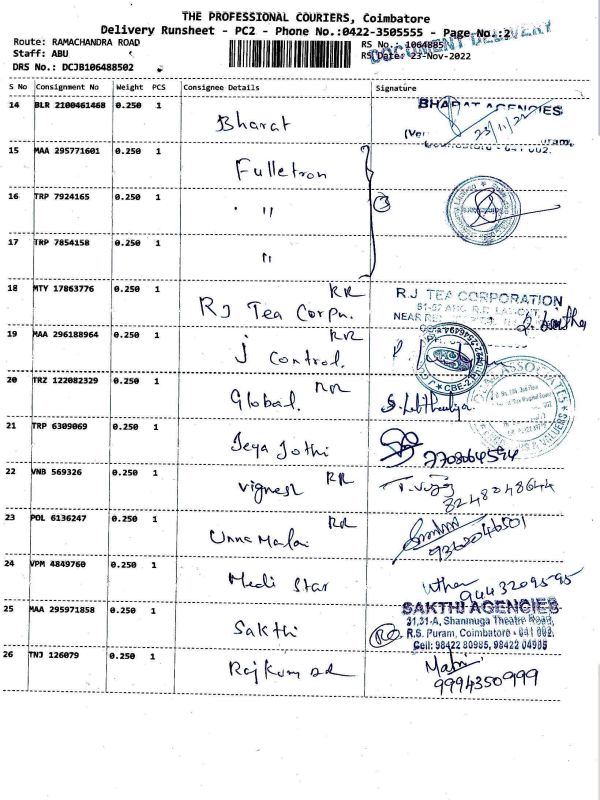 THE PROFESSIONAL COURIERS, Coimbatore
Delivery Runsheet - PC2 - Phone No.:0422-3505555 - Page No.:2
DOCUMENT DELIVERY
Route: RAMACHANDRA ROAD
RS No.: 1064885
Staff: ABU
RS Date: 23-Nov-2022
DRS No.: DCJB106488502
S No Consignment No Weight PCS Consignee Details Signature
14 BLR 2100461468 0.250 1 Bharat BHARAT AGENCIES
23/11/22
15 MAA 295771601 0.250 1 Fulletron
16 TRP 7924165 0.250 1 " 3
17 TRP 7854158 0.250 1 "
18 MTY 17863776 0.250 1 RJ Tea Corpn. RR R.J TEA CORPORATION
19 MAA 296188964 0.250 1 J Control. RR
20 TRZ 122082329 0.250 1 Global. RR
21 TRP 6309069 0.250 1 Jeya Jothi 7708064594
22 VNB 569326 0.250 1 Vignesh RR 8248048644
23 POL 6136247 0.250 1 Unna Malai RR 9360046501
24 VPM 4849760 0.250 1 Medi Star 9443209595
25 MAA 295971858 0.250 1 Sakthi SAKTHI AGENCIES
31,31-A, Shanmuga Theatre Road,
R.S. Puram, Coimbatore - 641 002.
Cell: 98422 80985, 98422 04985
26 TNJ 126079 0.250 1 Rajkumar 9994350999